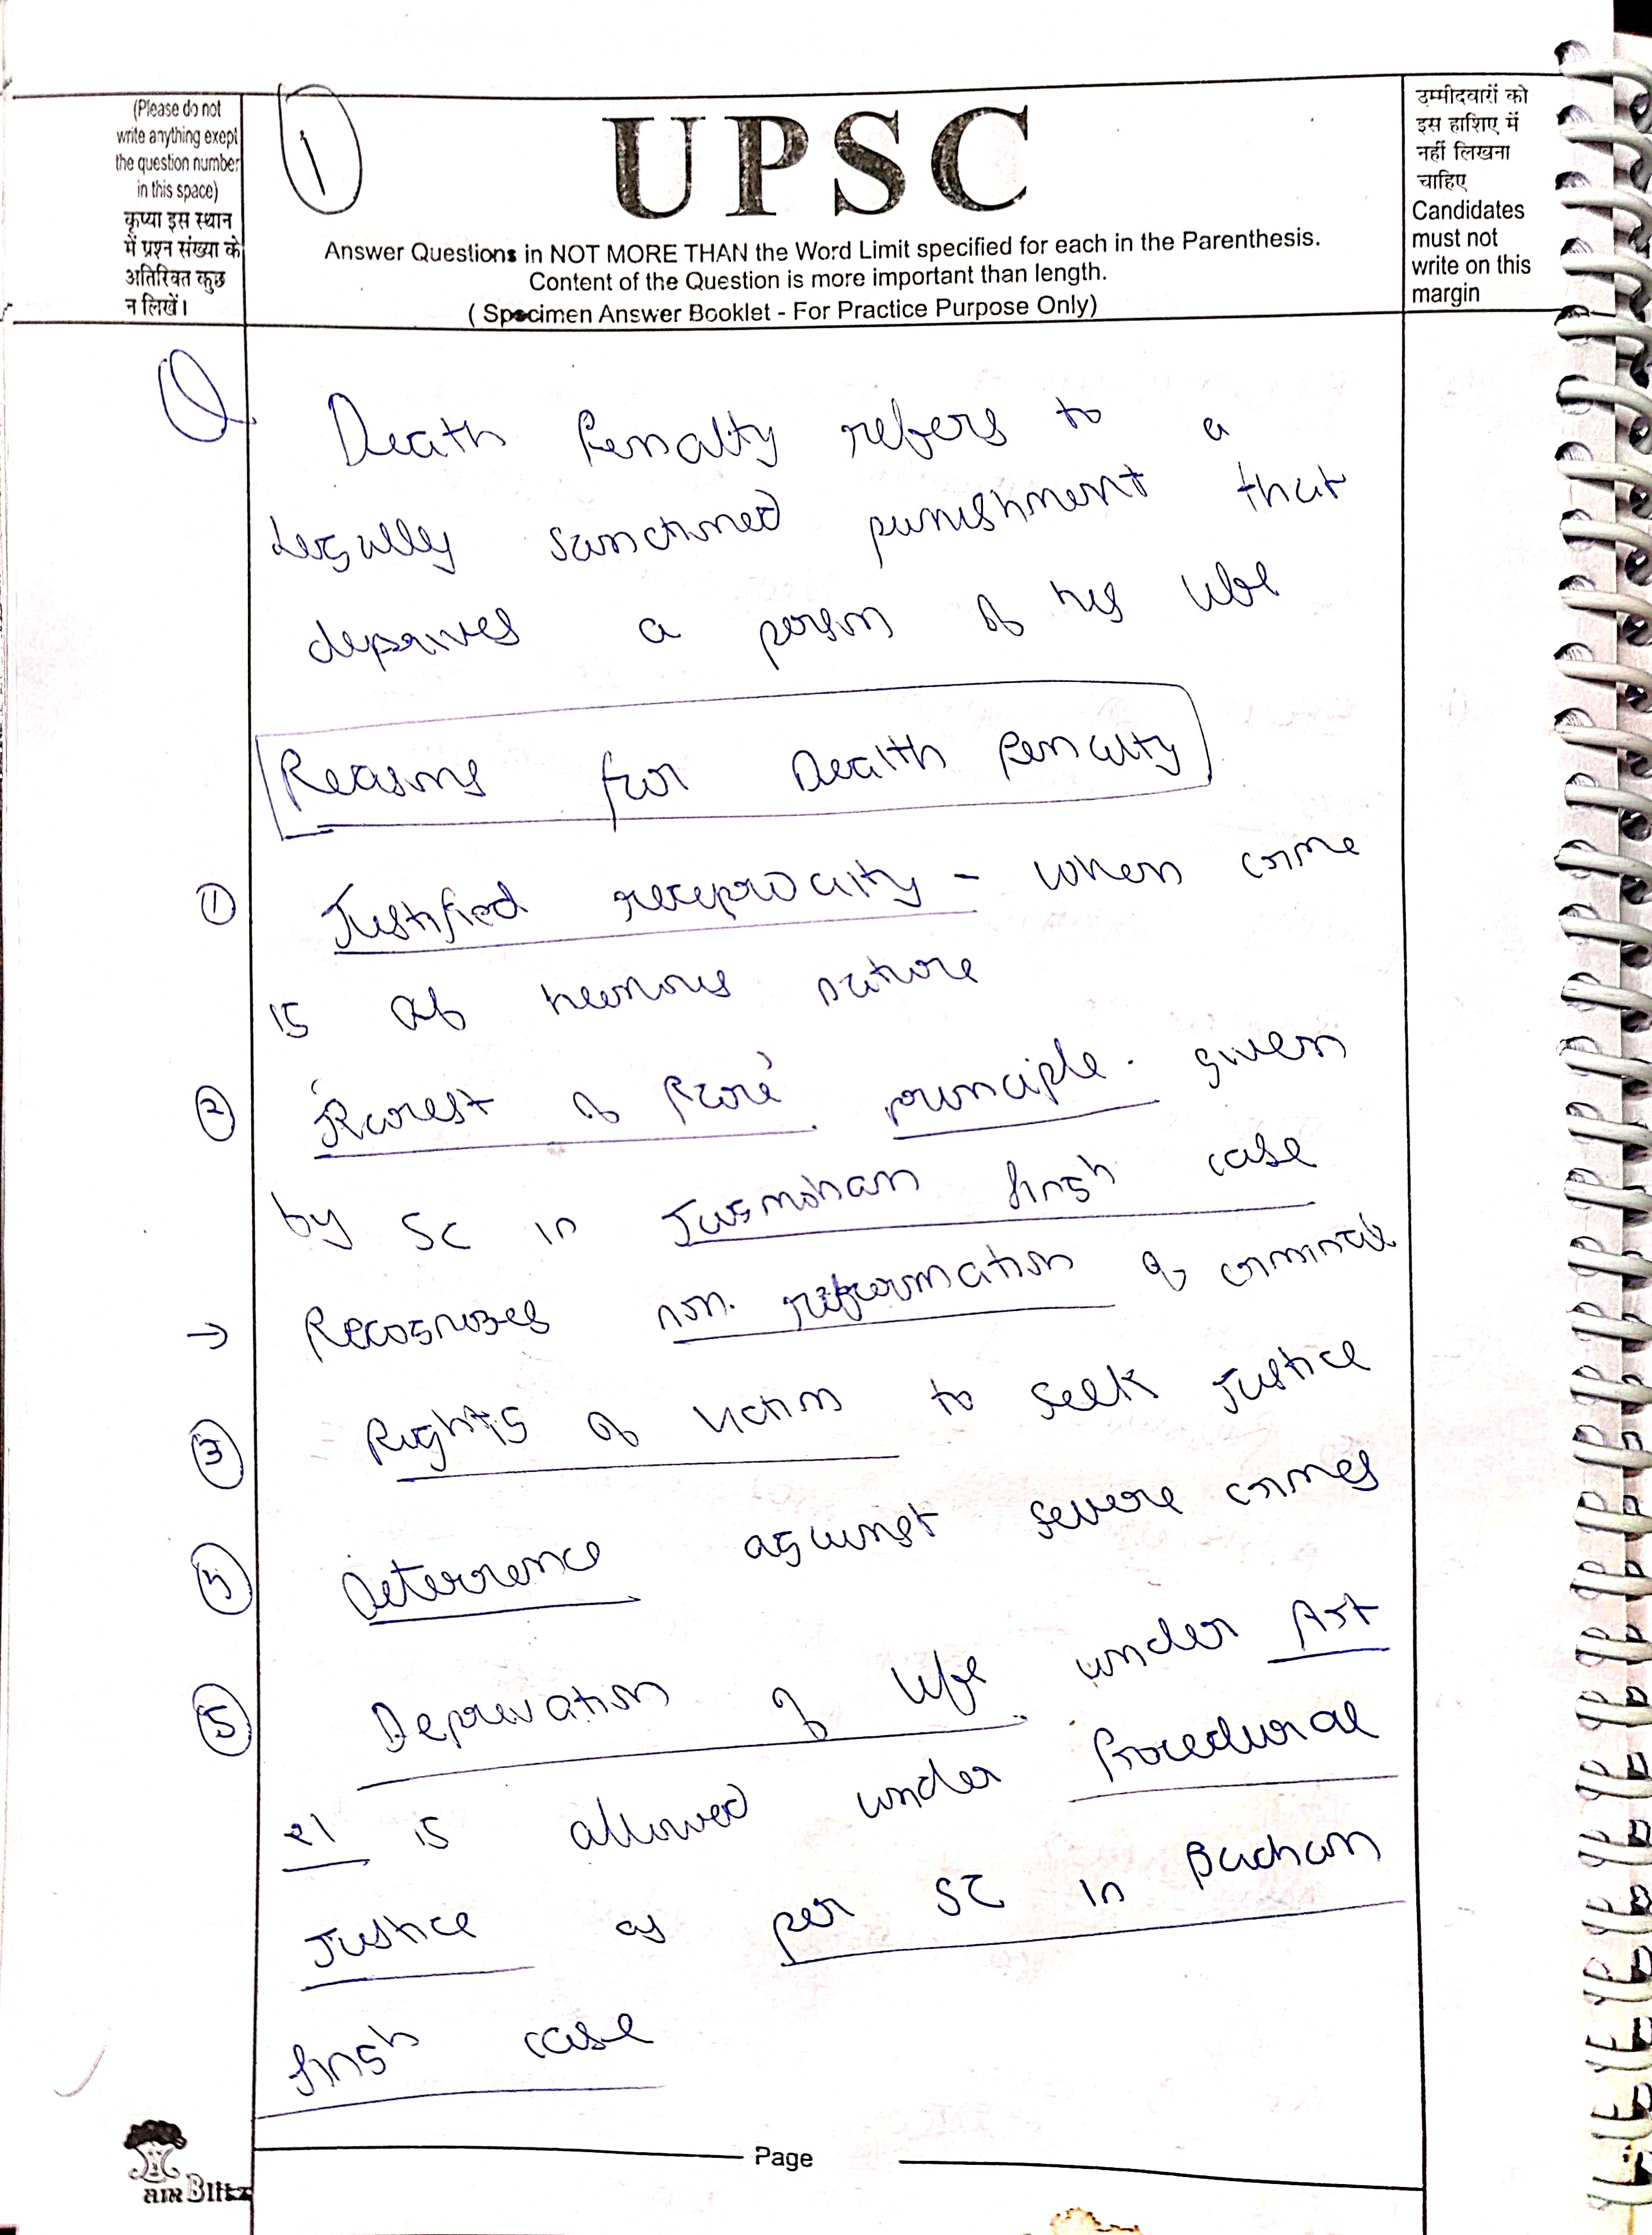 (Please do not
write anything exept
the question number
in this space)
कृप्या इस स्थान
में प्रश्न संख्या के
अतिरिक्त कुछ
न लिखें।
1
UPSC
Answer Questions in NOT MORE THAN the Word Limit specified for each in the Parenthesis.
Content of the Question is more important than length.
( Specimen Answer Booklet - For Practice Purpose Only)
उम्मीदवारों को
इस हाशिए में
नहीं लिखना
चाहिए
Candidates
must not
write on this
margin
Q. Death Penalty refers to a
legally sanctioned punishment that
deprives a person of his life
Reasons for Death Penalty
① Justified reciprocity - when crime
is of heinous nature
② 'Rarest of Rare' principle. given
by SC in Jagmohan Singh case
→ Recognizes non-reformation of criminals
③ Rights of victim to seek justice
④ Deterrence against severe crimes
⑤ Deprivation of life under Art
21 is allowed under Procedural
Justice as per SC in Bachan
Singh case
Page
AIM Blitz